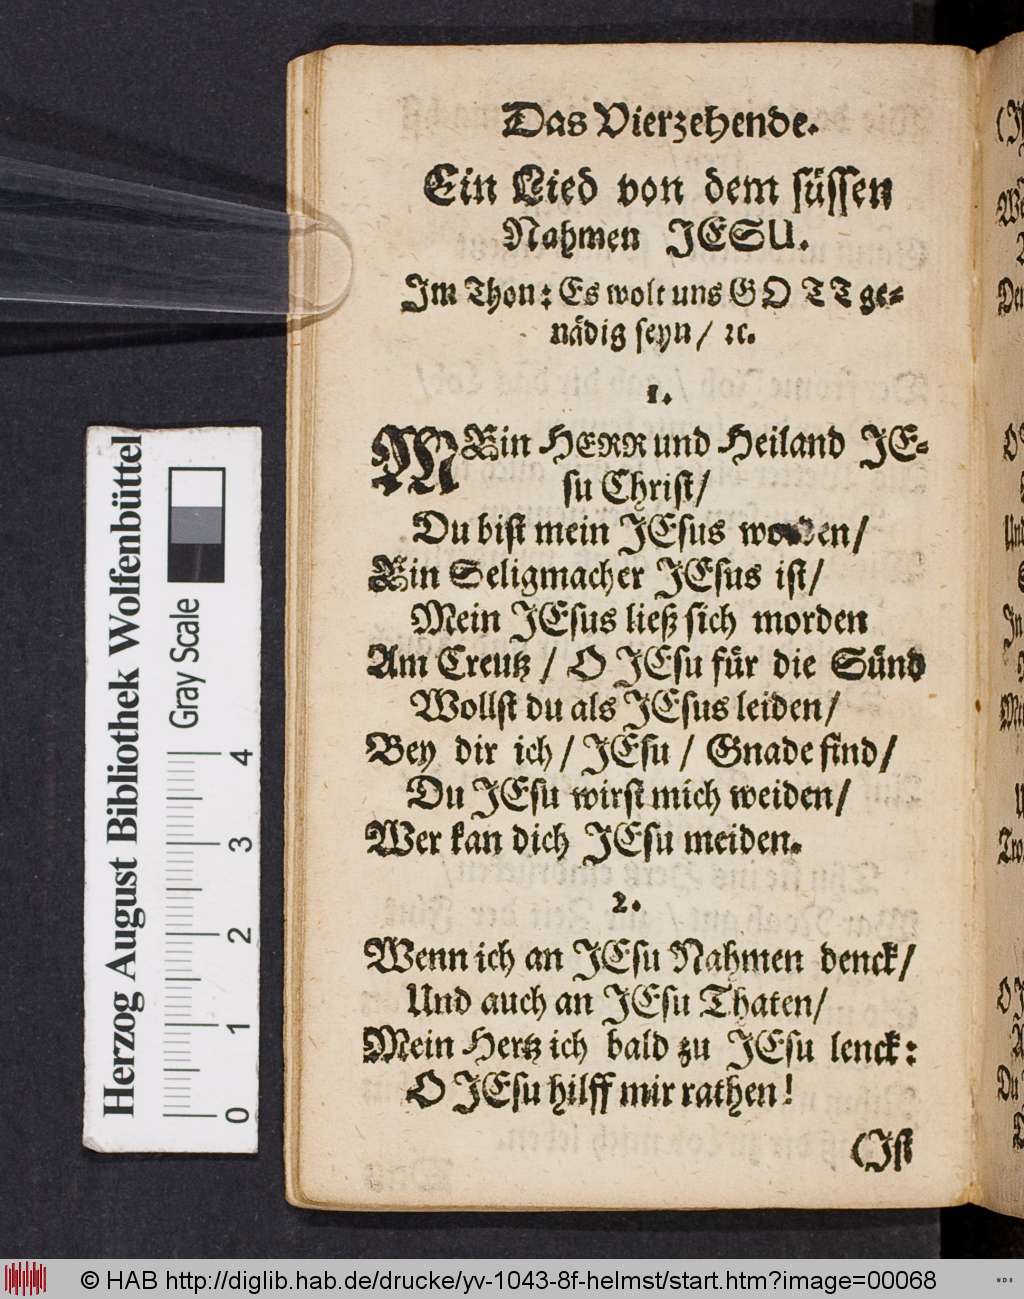 Das Vierzehende.
Ein Lied von dem süssen
Nahmen JESU.
Im Thon: Es wolt uns GOTT ge-
nädig seyn/ ꝛc.
1.
MEin HERR und Heiland JE-
su Christ/
Du bist mein JEsus worden/
Ein Seligmacher JEsus ist/
Mein JEsus ließ sich morden
Am Creutz / O JEsu für die Sünd
Wollst du als JEsus leiden/
Bey dir ich / JEsu / Gnade find/
Du JEsu wirst mich weiden/
Wer kan dich JEsu meiden.
2.
Wenn ich an JEsu Nahmen denck/
Und auch an JEsu Thaten/
Mein Hertz ich bald zu JEsu lenck:
O JEsu hilff mir rathen!
(Ist
Herzog August Bibliothek Wolfenbüttel
Gray Scale
0 1 2 3 4
© HAB http://diglib.hab.de/drucke/yv-1043-8f-helmst/start.htm?image=00068